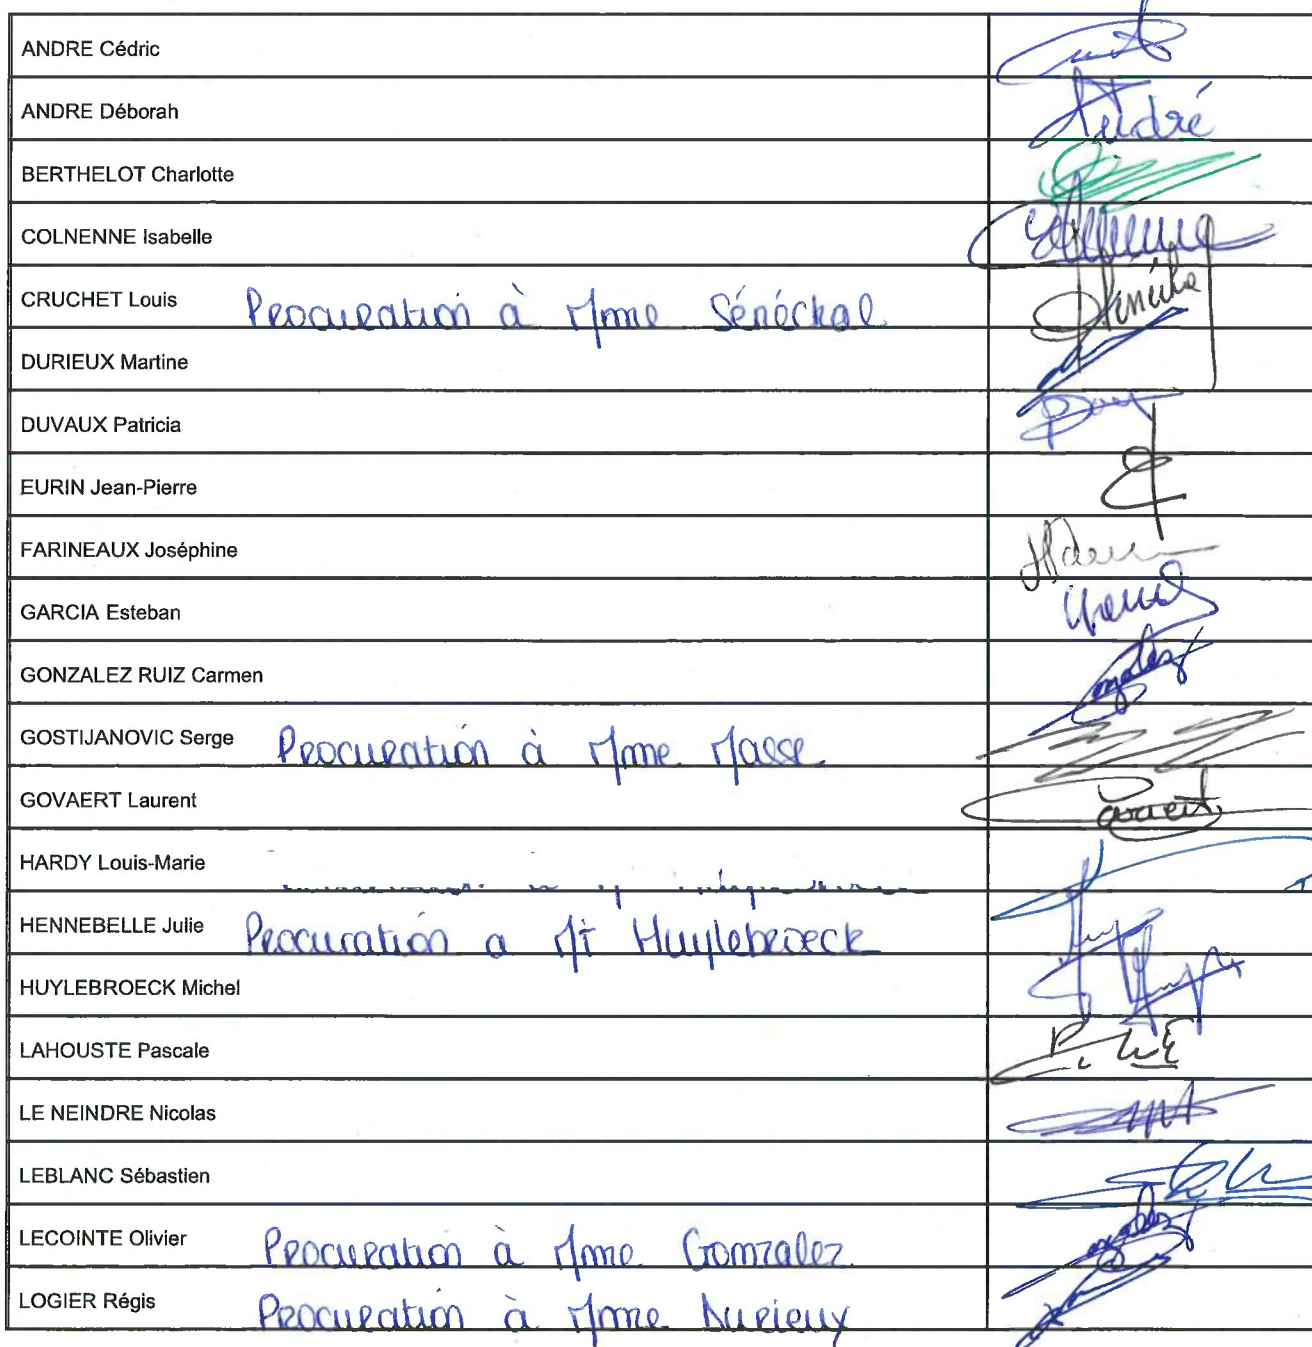 ANDRE Cédric
ANDRE Déborah
André
BERTHELOT Charlotte
COLNENNE Isabelle
CRUCHET Louis Procuration à Mme Sénéchal
DURIEUX Martine
DUVAUX Patricia
EURIN Jean-Pierre
FARINEAUX Joséphine
GARCIA Esteban
GONZALEZ RUIZ Carmen
GOSTIJANOVIC Serge Procuration à Mme Masse
GOVAERT Laurent
HARDY Louis-Marie
HENNEBELLE Julie Procuration a Mr Huylebroeck
HUYLEBROECK Michel
LAHOUSTE Pascale
LE NEINDRE Nicolas
LEBLANC Sébastien
LECOINTE Olivier Procuration à Mme Gonzalez
LOGIER Régis Procuration à Mme Durieux